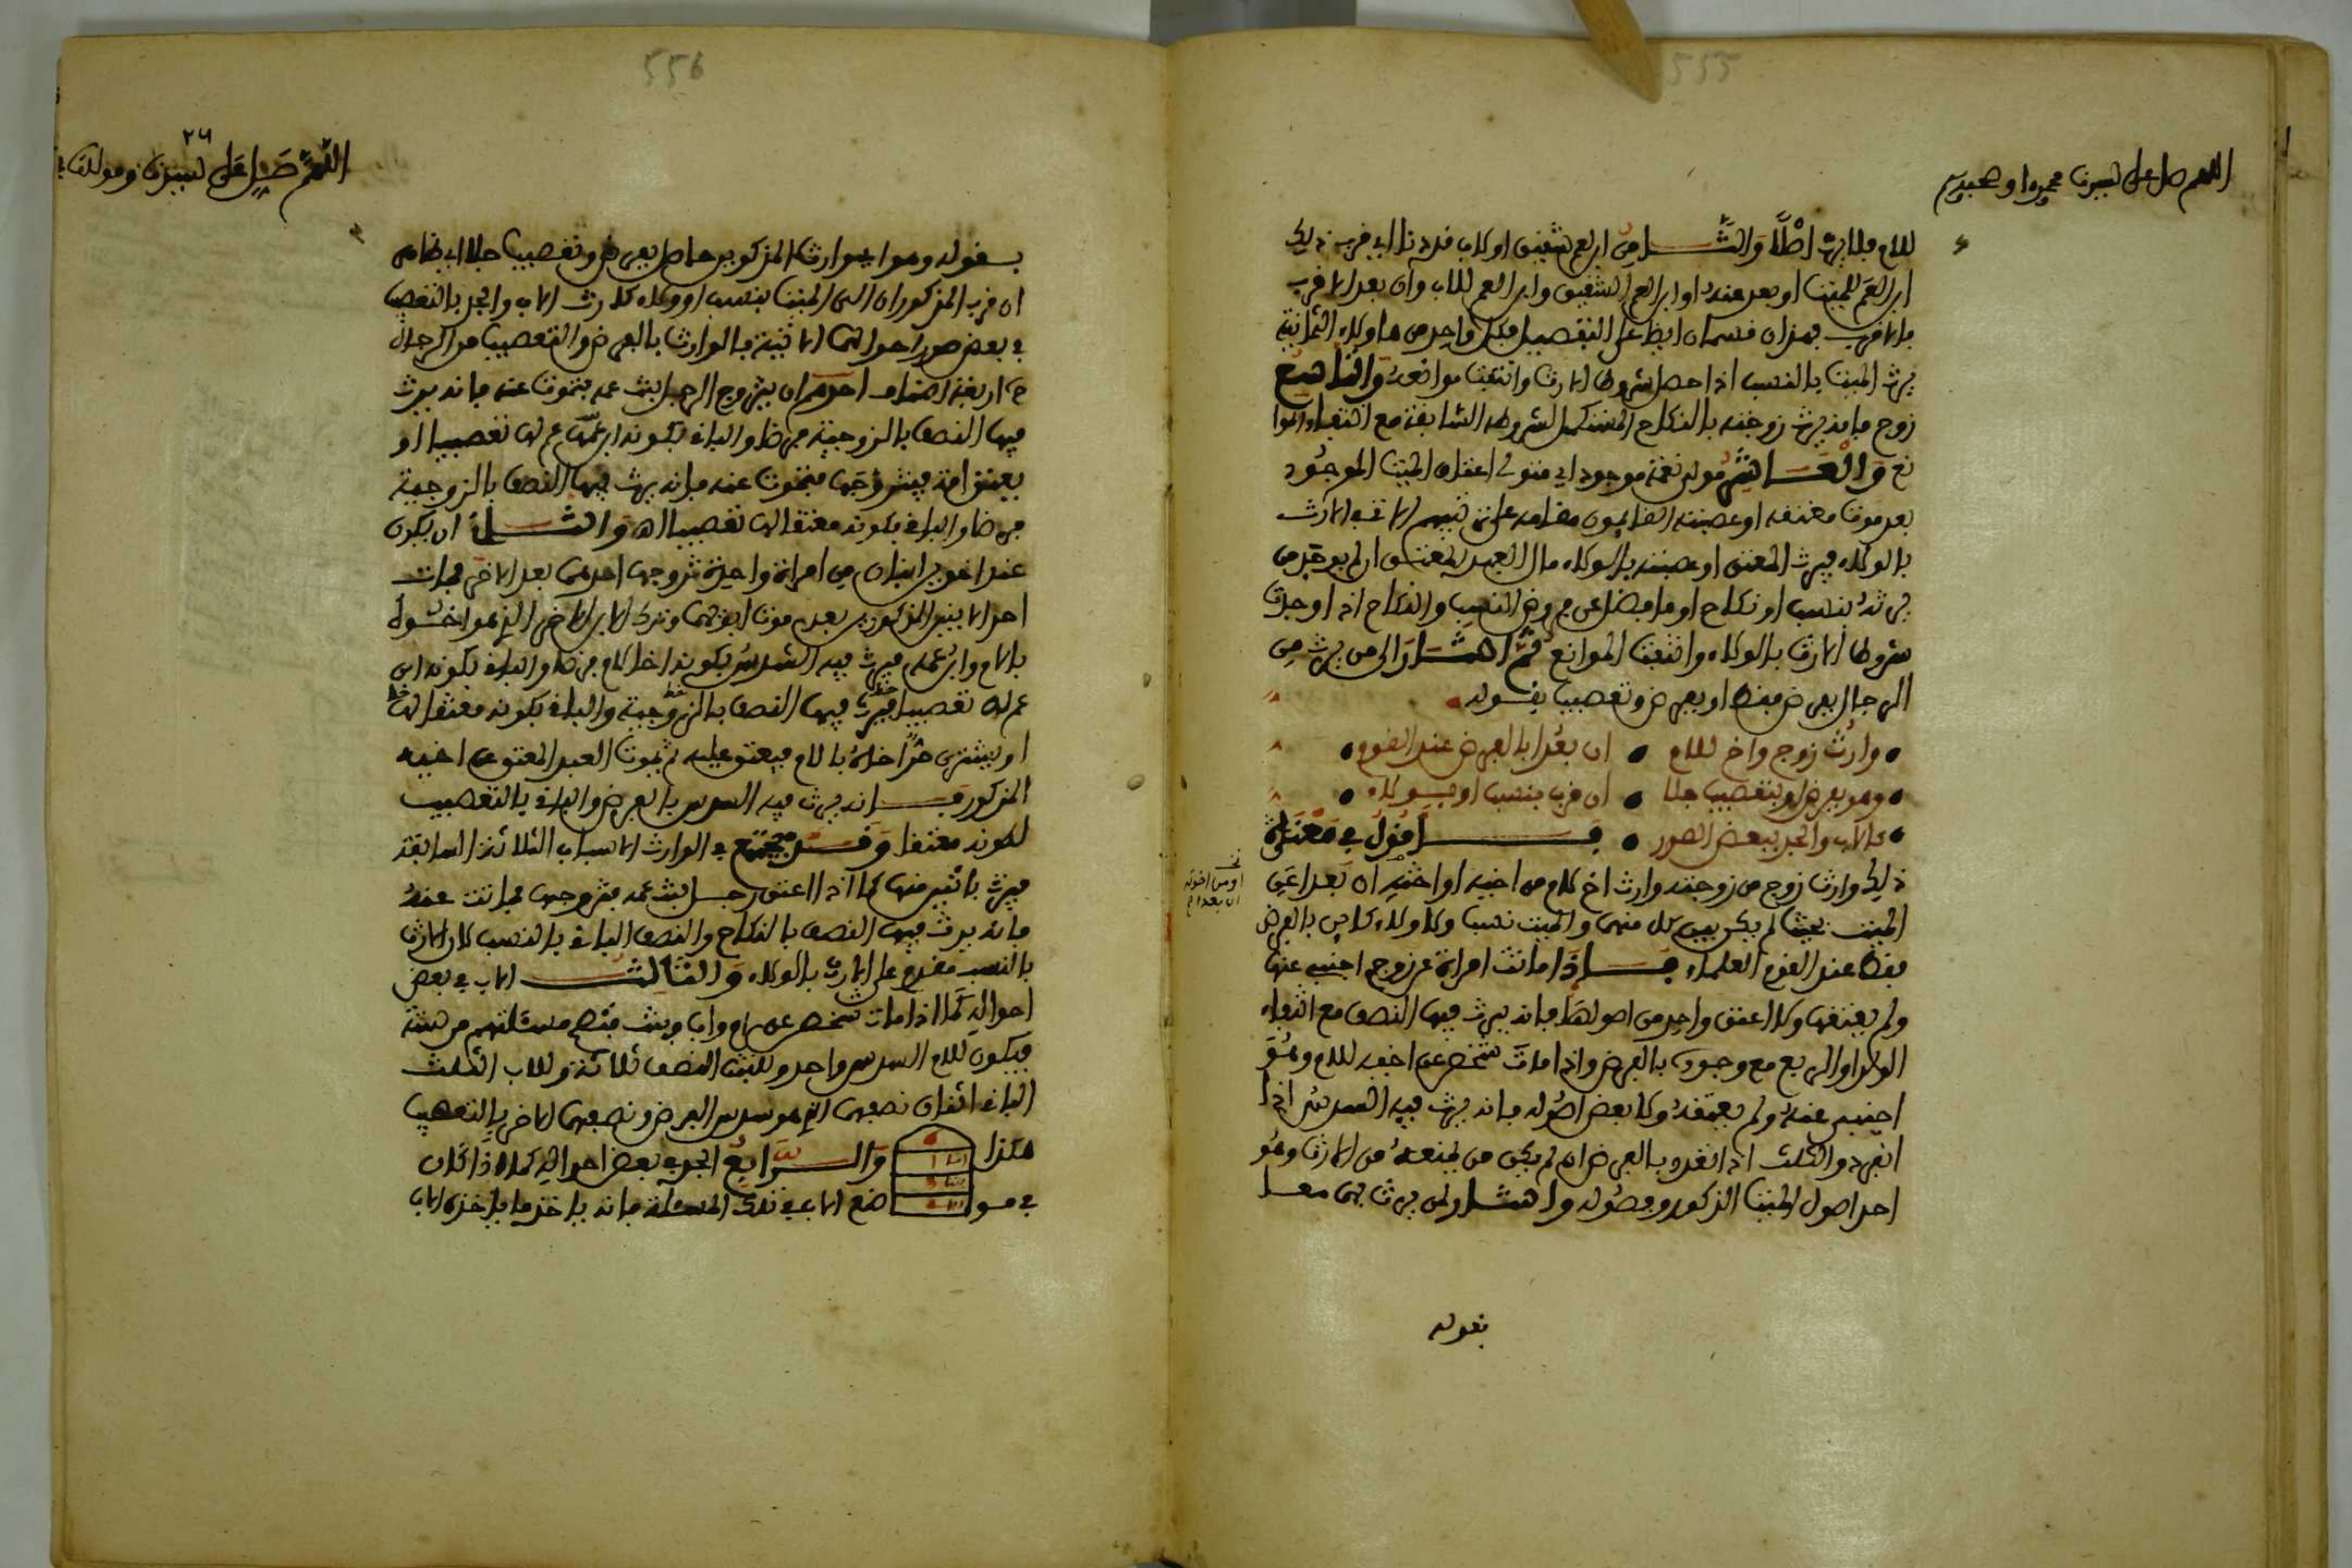 555
اللهم صل على سيدنا محمد واله وصحبه وسلم
للام فلا يرث اصلا والثامن ابن عم شقيق او لاب قد دنا اي قرب ذلك
ابن العم للميت او بعد عنه او ابن العم الشقيق وابن العم للاب وان بعد الاقرب
فالاقرب فهذان قسمان ايضا على التفصيل فكل واحد من هاولاء الثمانية
يرث الميت بالنسب اذا حصل شروط الارث وانتفت موانعه والتاسع
زوج فانه يرث زوجته بالنكاح المستكمل لشروطه السابقة مع انتفاء الموا
نع والعاشر مولى نعمة موجود اي متولى اعتاق الميت الموجود
بعد موت معتقه او عصبته القايمون مقامه على ترتيبهم الاتي في الارث
بالولاء فيرث المعتق او عصبته بالولاء مال العبد المعتق ان لم يوجد من
يرثه بنسب او نكاح او ما فضل عن فروض النسب والنكاح اذا وجدت
شروط الارث بالولاء وانتفت الموانع ثم اشار الى من يرث من
الرجال بفرض فقط او بفرض وتعصيب بقوله
وارث زوج واخ للام • ان بعدا بالفرض عند القوم
وهو بفرض او بتعصيب جلا • ان قرب بنسب او بولاء
كالاب والجد ببعض الصور • فاقول في معناه
ذلك وارث زوج من زوجته وارث اخ لام من اخيه او اخته ان بعدا عن
او من اخوته
ان بعدا ع
الميت بحيث لم يكن بين كل منهما والميت نسب ولا ولاء كاين بالفرض
فقط عند القوم العلماء فاذا ماتت امراة عن زوج اجنبي عنها
ولم يعتقها ولا اعتق واحد من اصولها فانه يرث فيها النصف مع انتفاء
الولد او الربع مع وجوده بالفرض واذا مات شخص عن اخيه للام وهو
اجنبي عنه ولم يعتقه ولا بعض اصوله فانه يرث فيه السدس اذا
انفرد والثلث اذا تعدد بالفرض ان لم يكن من يمنعه من الارث وهو
احد اصول الميت الذكور وفصوله واشار لمن يرث بهما معا
بقوله
556
٢٦
اللهم صل على سيدنا ومولانا
بقوله وهو اي وارث المذكورين حاصل بفرض وتعصيب جلا اي ظاهر
ان قرب المذكوران الى الميت بنسب او ولاء كارث الاب والجد بالتعصيب
في بعض صور احوالهما الاتية فالوارث بالفرض والتعصيب من الرجال
اربعة اصناف احدهم ان يتزوج الرجل بنت عمه فتموت عنه فانه يرث
فيها النصف بالزوجية فرضا والباقي بكونه ابن عم لها تعصيبا او
يعتق امة فيتزوجها فتموت عنه فانه يرث فيها النصف بالزوجية
فرضا والباقي بكونه معتقا لها تعصيبا اه والثاني ان يكون
عند اخوين ابنان من امراة واحدة تزوجها احدهما بعد الاخر فمات
احد الابنين المذكورين بعد موت ابويهما وترك الابن الاخر الذي هو اخوه
بالام وابن عمه فيرث فيه السدس بكونه اخا لام فرضا والباقي بكونه ابن
عم له تعصيبا فيرث فيها النصف بالزوجية والباقي بكونه معتقا لها
او يشتري حر اخاه بالام فيعتق عليه ثم يموت العبد المعتق عن اخيه
المذكور فانه يرث فيه السدس بالفرض والباقي بالتعصيب
لكونه معتقا وقد يجتمع في الوارث الاسباب الثلاثة السابقة
فيرث باثنين منها كما اذا اعتق رجل بنت عمه فتزوجها فماتت عنه
فانه يرث فيها النصف بالنكاح والنصف الباقي بالنسب لان الارث
بالنسب مقدم على الارث بالولاء والثالث الاب في بعض
احواله كما اذا مات شخص عن ام واب وبنت فتصح مسئلتهم من ستة
فيكون للام السدس واحد وللبنت النصف ثلاثة وللاب الثلث
الباقي اثنان نصفهما الذي هو سدس الفرض ونصفهما الاخر بالتعصيب
هكذا والرابع الجد في بعض احواله كما اذا كان
في موضع الاب في تلك المسئلة فانه ياخذ ما ياخذه الاب